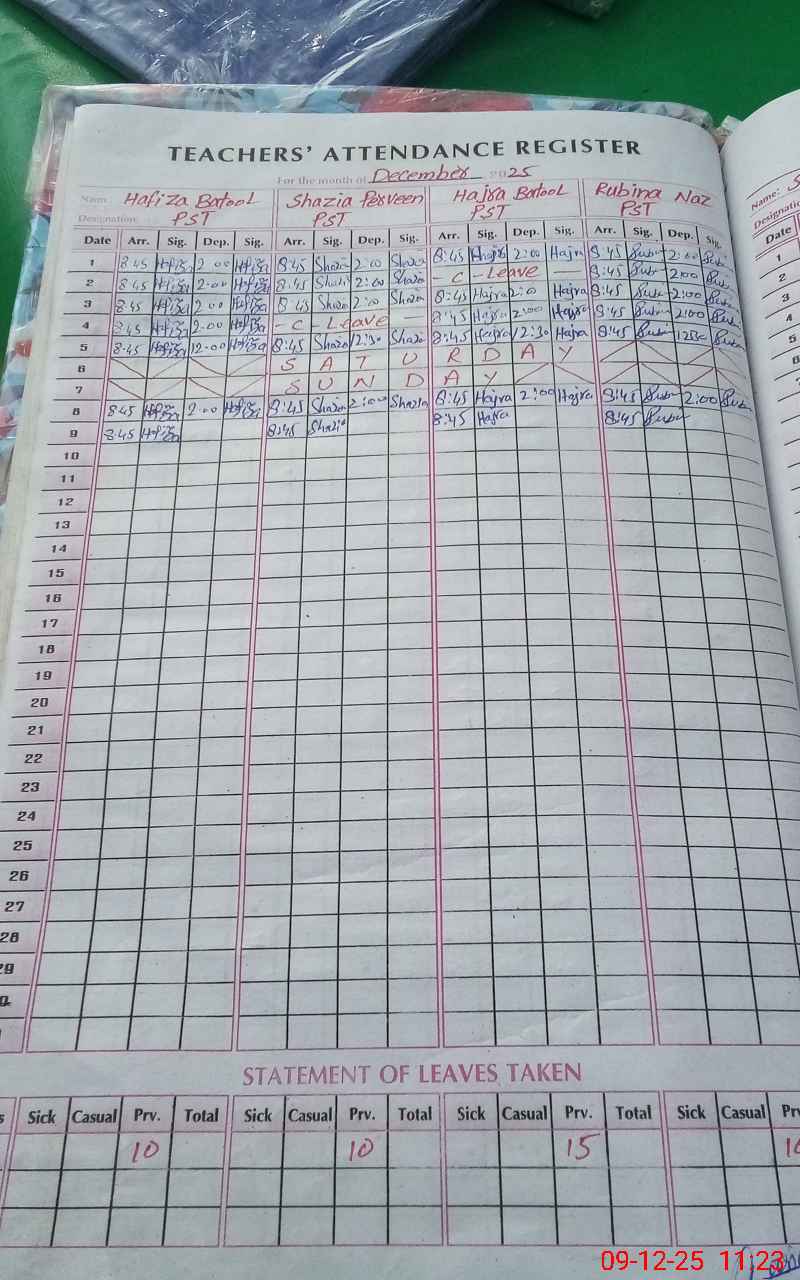 TEACHERS' ATTENDANCE REGISTER
For the month of December 2025
Name Hafiza Batool Shazia Perveen Hajra Batool Rubina Naz Name: S
Designation: PST PST PST PST
Date Arr. Sig. Dep. Sig. Arr. Sig. Dep. Sig. Arr. Sig. Dep. Sig. Arr. Sig. Dep. Sig. Date
1 8:45 Hafiza 2:00 Hafiza 8:45 Shazia 2:00 Shazia 8:45 Hajra 2:00 Hajra 8:45 Rubi 2:00 Rubi 1
2 8:45 Hafiza 2:00 Hafiza 8:45 Shazia 2:00 Shazia - C - Leave - 8:45 Rubi 2:00 Rubi 2
3 8:45 Hafiza 2:00 Hafiza 8:45 Shazia 2:00 Shazia 8:45 Hajra 2:00 Hajra 8:45 Rubi 2:00 Rubi 3
4 8:45 Hafiza 2:00 Hafiza - C - Leave - 8:45 Hajra 2:00 Hajra 8:45 Rubi 2:00 Rubi 4
5 8:45 Hafiza 12:00 Hafiza 8:45 Shazia 12:30 Shazia 8:45 Hajra 12:30 Hajra 8:45 Rubi 1230 Rubi 5
6 S A T U R D A Y
7 S U N D A Y
8 8:45 Hafiza 2:00 Hafiza 8:45 Shazia 2:00 Shazia 8:45 Hajra 2:00 Hajra 8:45 Rubi 2:00 Rubi
9 8:45 Hafiza 8:45 Shazia 8:45 Hajra 8:45 Rubi
10
11
12
13
14
15
16
17
18
19
20
21
22
23
24
25
26
27
28
29
STATEMENT OF LEAVES TAKEN
Sick Casual Prv. Total Sick Casual Prv. Total Sick Casual Prv. Total Sick Casual Prv
10 10 15
09-12-25 11:23